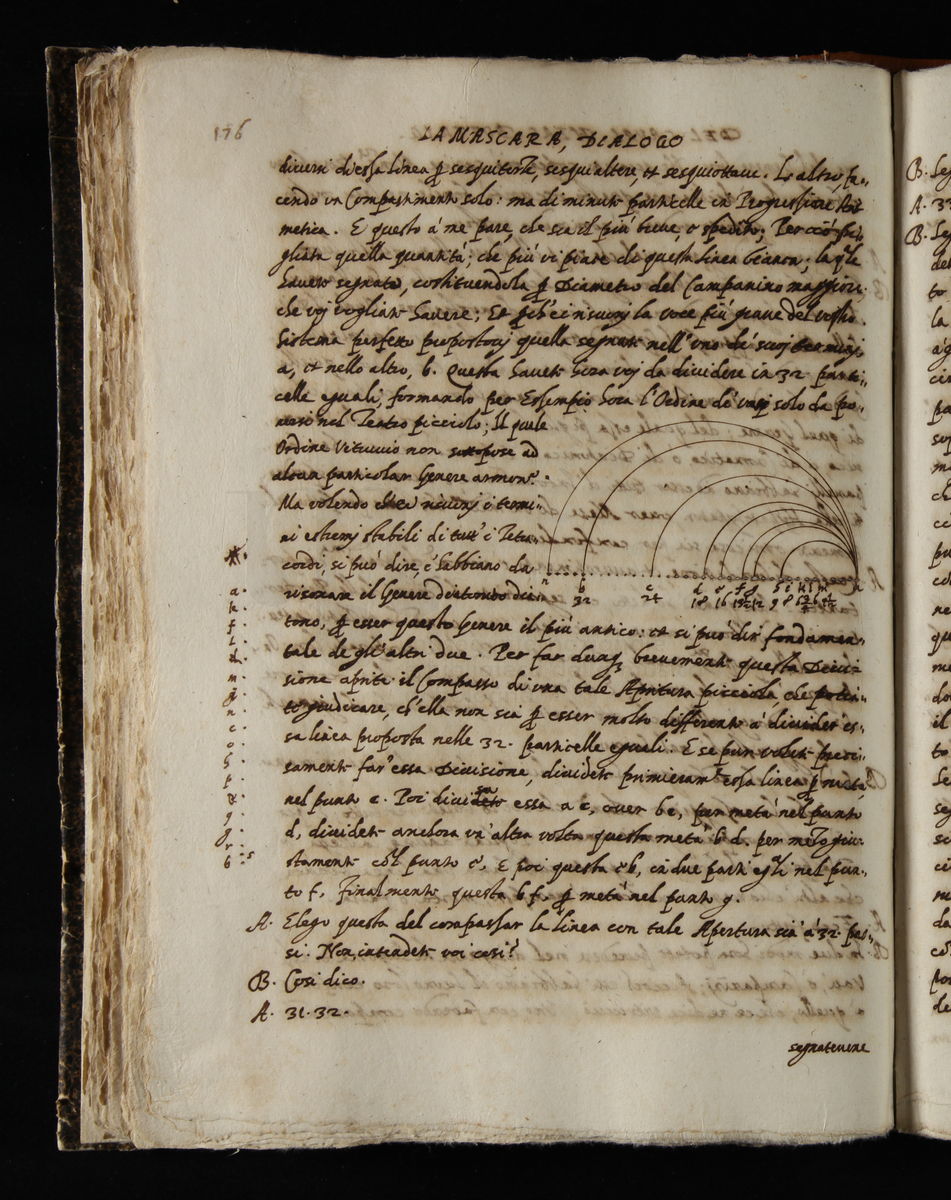 176
LA MASCARA, DIALOGO
diversi di essa linea p sesquiterze, sesquialtere, et sesquiottave. L'altro, fa=
cendo un Compartimento solo: ma di minute particelle in Progressione Arit
metica. E questo à me pare, che sia il più breve, e spedito; Perciò pi=
gliata quella quantità, che più vi piace di questa linea bianca; la qle
havete segnata, costituendola p Diametro del Campanino maggiore
che voj vogliate havere; Et che ci risuonj la voce più grave del vostro
sistema perfetto propostovj quella segnate nell'uno de' suoj terminj
a, et nello altro, b. Questa havete hora voj da dividere in 32 parti=
celle eguali, formando per Essempio hora l'Ordine de' vasj solo da po=
nersi nel Teatro picciolo; Il quale
Ordine Vitruvio non sottopose ad
alcun particolar Genere armon.º
Ma volendo che risuonj i termi=
ni estremj stabili di tutt'i Tetra=
cordi, si può dire, c'habbiano da
risonare il Genere Diatonico
tono, p esser questo Genere il più antico: et si può dir fondamen=
tale de gl'altri due. Per far dunq; brevemente questa Divi=
sione aprite il Compasso di una tale Apritura picciola, che potia=
te giudicare, ch'ella non sia p esser molto differente à divider es=
sa linea proposta nelle 32. particelle eguali. E se pur volete preci=
samente far'essa Divisione, dividete primieramte essa linea p metà
nel punto c. Poi dividete essa a c, over b c, per metà nel punto
d, dividete anchora un'altra volta questa metà b d. per mezo giu=
stamente col punto e. E poi questa e b, in due parti eqli nel pun=
to f. Finalmente, questa b f. p metà nel punto g.
A. Elego questa del compassar la linea con tale Apertura sia à 32. pas=
si. Non intendete voi così?
B. Così dico.
A. 31. 32.
segnatevene
a.
k.
f.
l.
d.
m.
g.
n.
c.
o.
h.
p.
e.
q.
g.
r.
b.
B
32
c
24
d
18
e
16
f
g
12
h
9
i
8
k
l
6
m